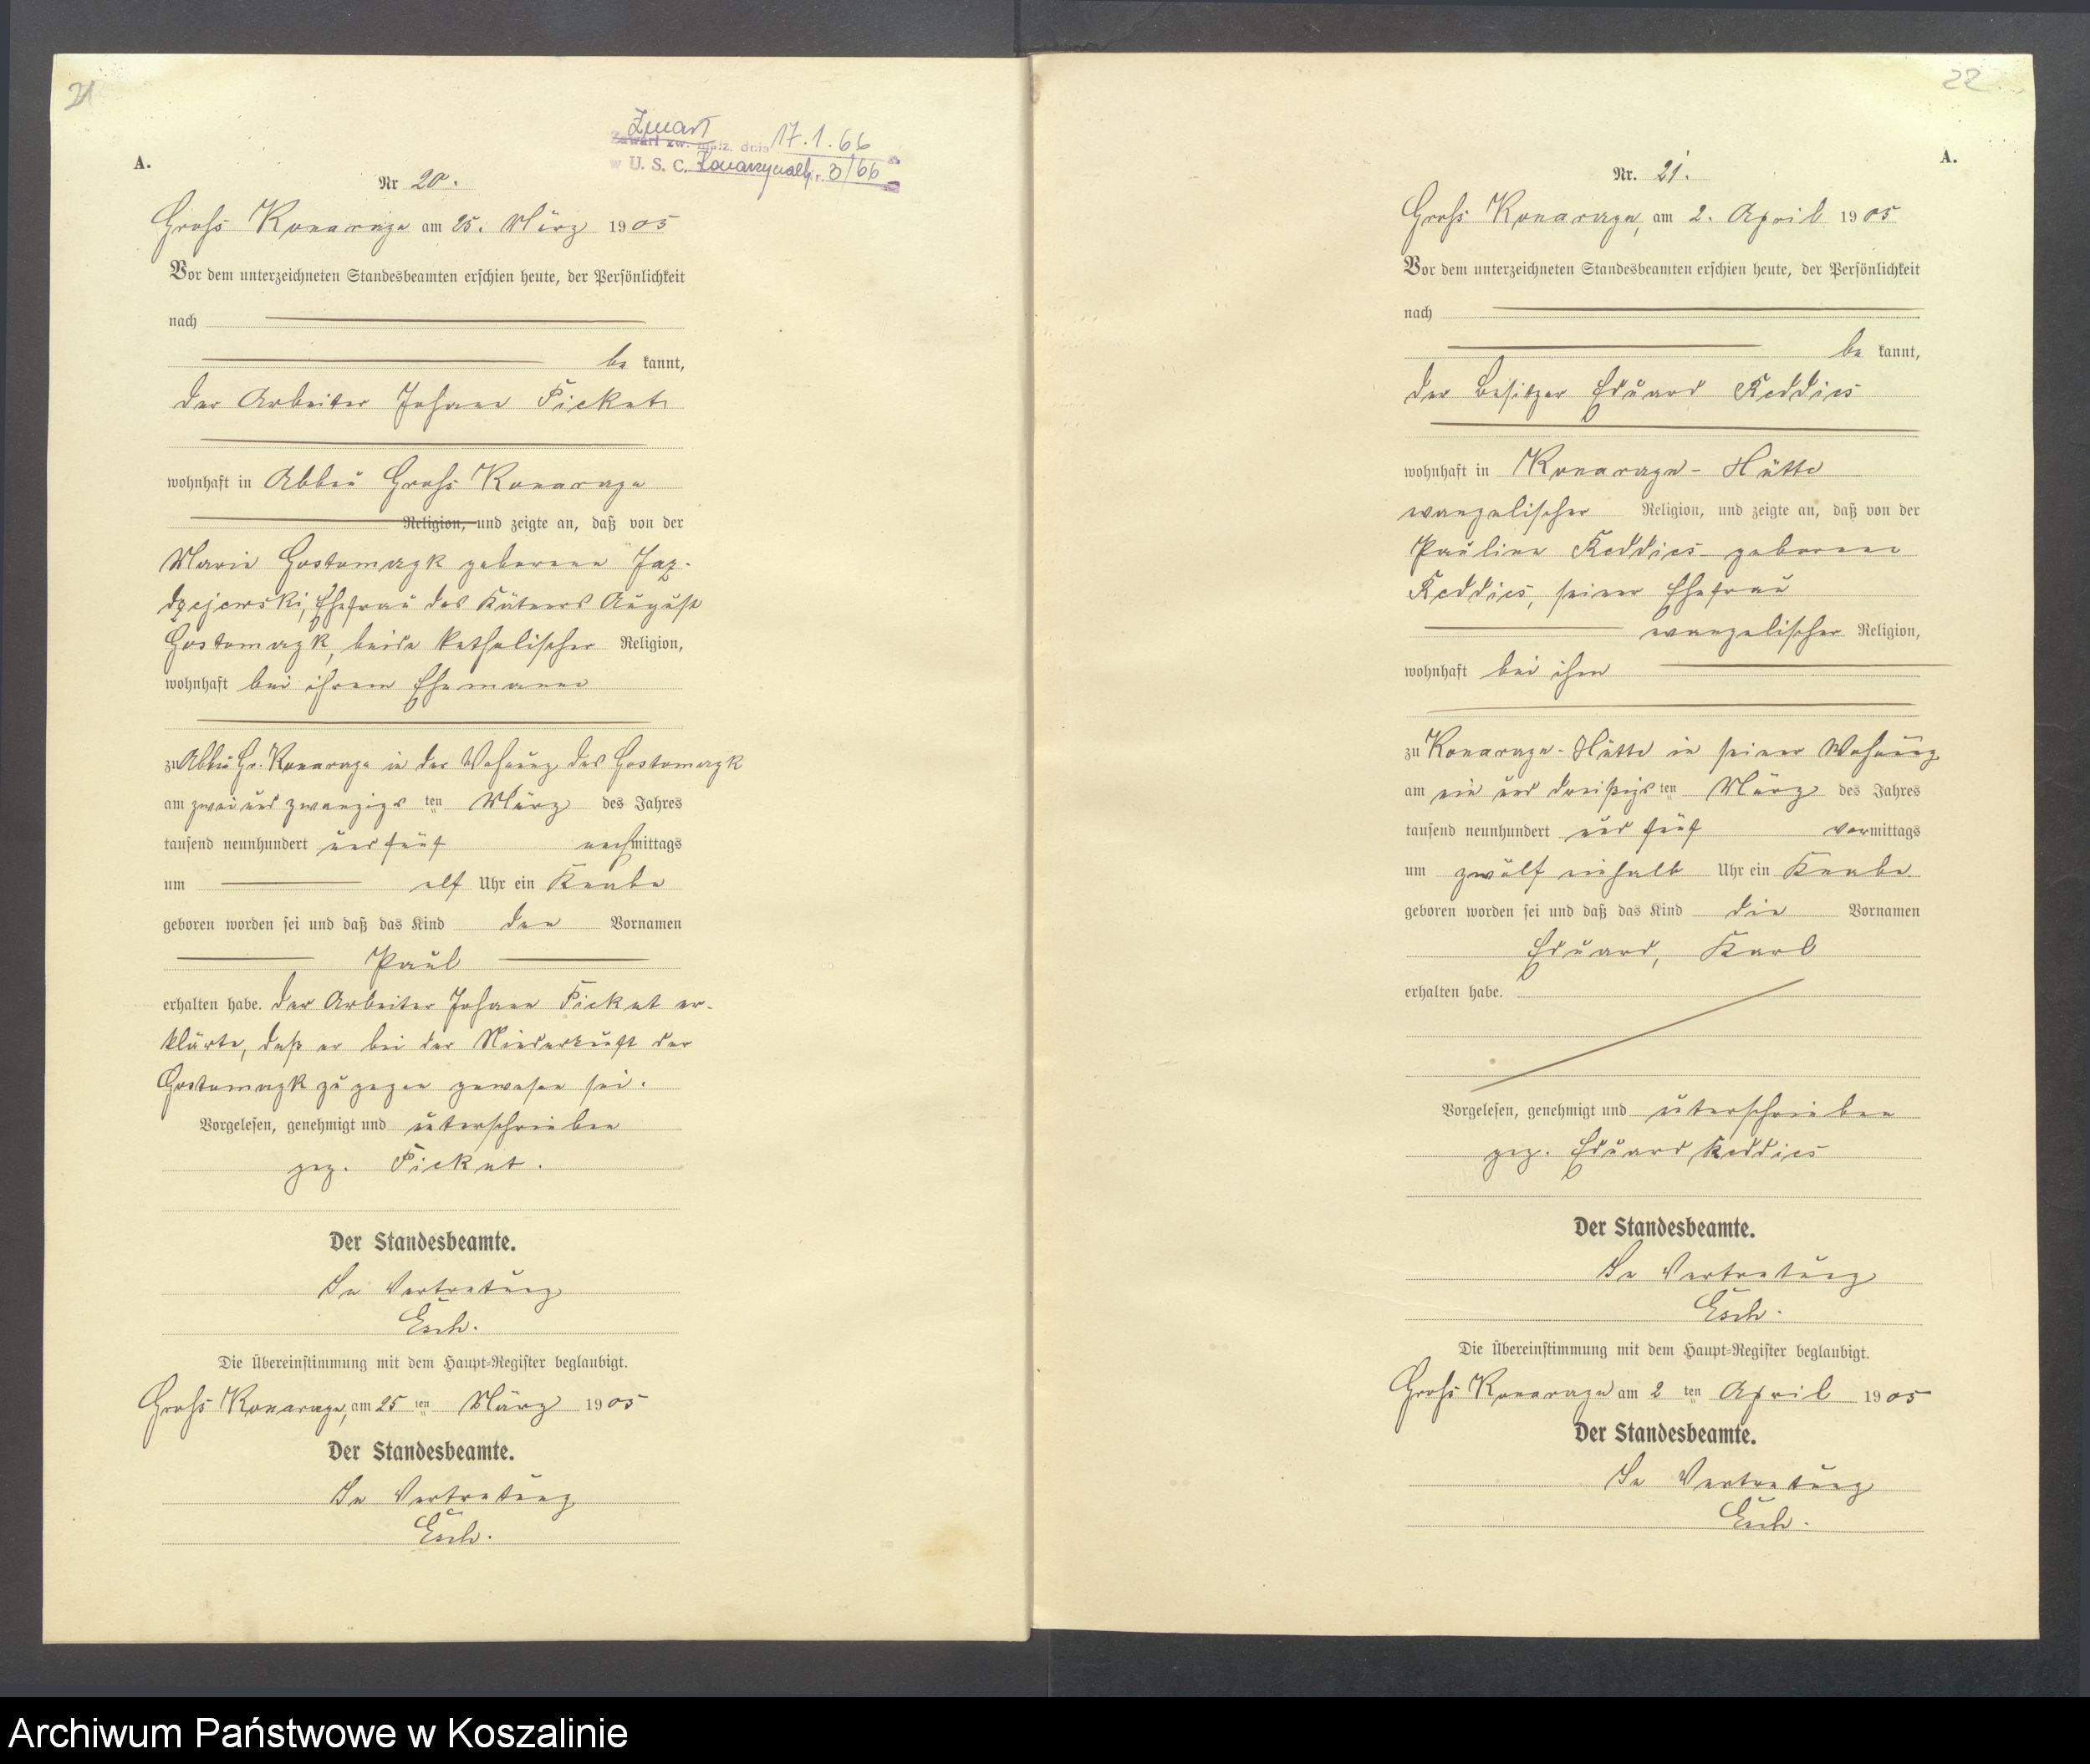 21
A.
Zmarł
Zawarł zw. małż. dnia 17.1.66
w U. S. C. Konarzynach nr. 3/66
Nr 20.
Groß Konarczyn am 25. März 1905
Vor dem unterzeichneten Standesbeamten erschien heute, der Persönlichkeit
nach
be kannt,
der Arbeiter Johann Pickat
wohnhaft in Abbau Groß Konarczyn
Religion, und zeigte an, daß von der
Marie Gostomczyk geborene Jaz-
dzejewski, Ehefrau des Kätners August
Gostomczyk, beide katholischer Religion,
wohnhaft bei ihrem Ehemanne
zu Abbau Gr. Konarczyn in der Wohnung des Gostomczyk
am zwei und zwanzigsten März des Jahres
tausend neunhundert und fünf nachmittags
um elf Uhr ein Knabe
geboren worden sei und daß das Kind den Vornamen
Paul
erhalten habe. Der Arbeiter Johann Pickat er-
klärte, daß er bei der Niederkunft der
Gostomczyk zugegen gewesen sei.
Vorgelesen, genehmigt und unterschrieben
gez. Pickat.
Der Standesbeamte.
In Vertretung
Esch.
Die Übereinstimmung mit dem Haupt-Register beglaubigt.
Groß Konarczyn, am 25 ten März 1905
Der Standesbeamte.
In Vertretung
Esch.
22
A.
Nr. 21.
Groß Konarczyn, am 2. April 1905
Vor dem unterzeichneten Standesbeamten erschien heute, der Persönlichkeit
nach
be kannt,
der Besitzer Eduard Keddies
wohnhaft in Konarczyn-Hütte
evangelischer Religion, und zeigte an, daß von der
Pauline Keddies geborene
Keddies, seiner Ehefrau
evangelischer Religion,
wohnhaft bei ihm
zu Konarczyn-Hütte in seiner Wohnung
am ein und dreißigsten März des Jahres
tausend neunhundert und fünf vormittags
um zwölf einhalb Uhr ein Knabe
geboren worden sei und daß das Kind die Vornamen
Eduard, Karl
erhalten habe.
Vorgelesen, genehmigt und unterschrieben
gez. Eduard Keddies
Der Standesbeamte.
In Vertretung
Esch.
Die Übereinstimmung mit dem Haupt-Register beglaubigt.
Groß Konarczyn am 2 ten April 1905
Der Standesbeamte.
In Vertretung
Esch.
Archiwum Państwowe w Koszalinie